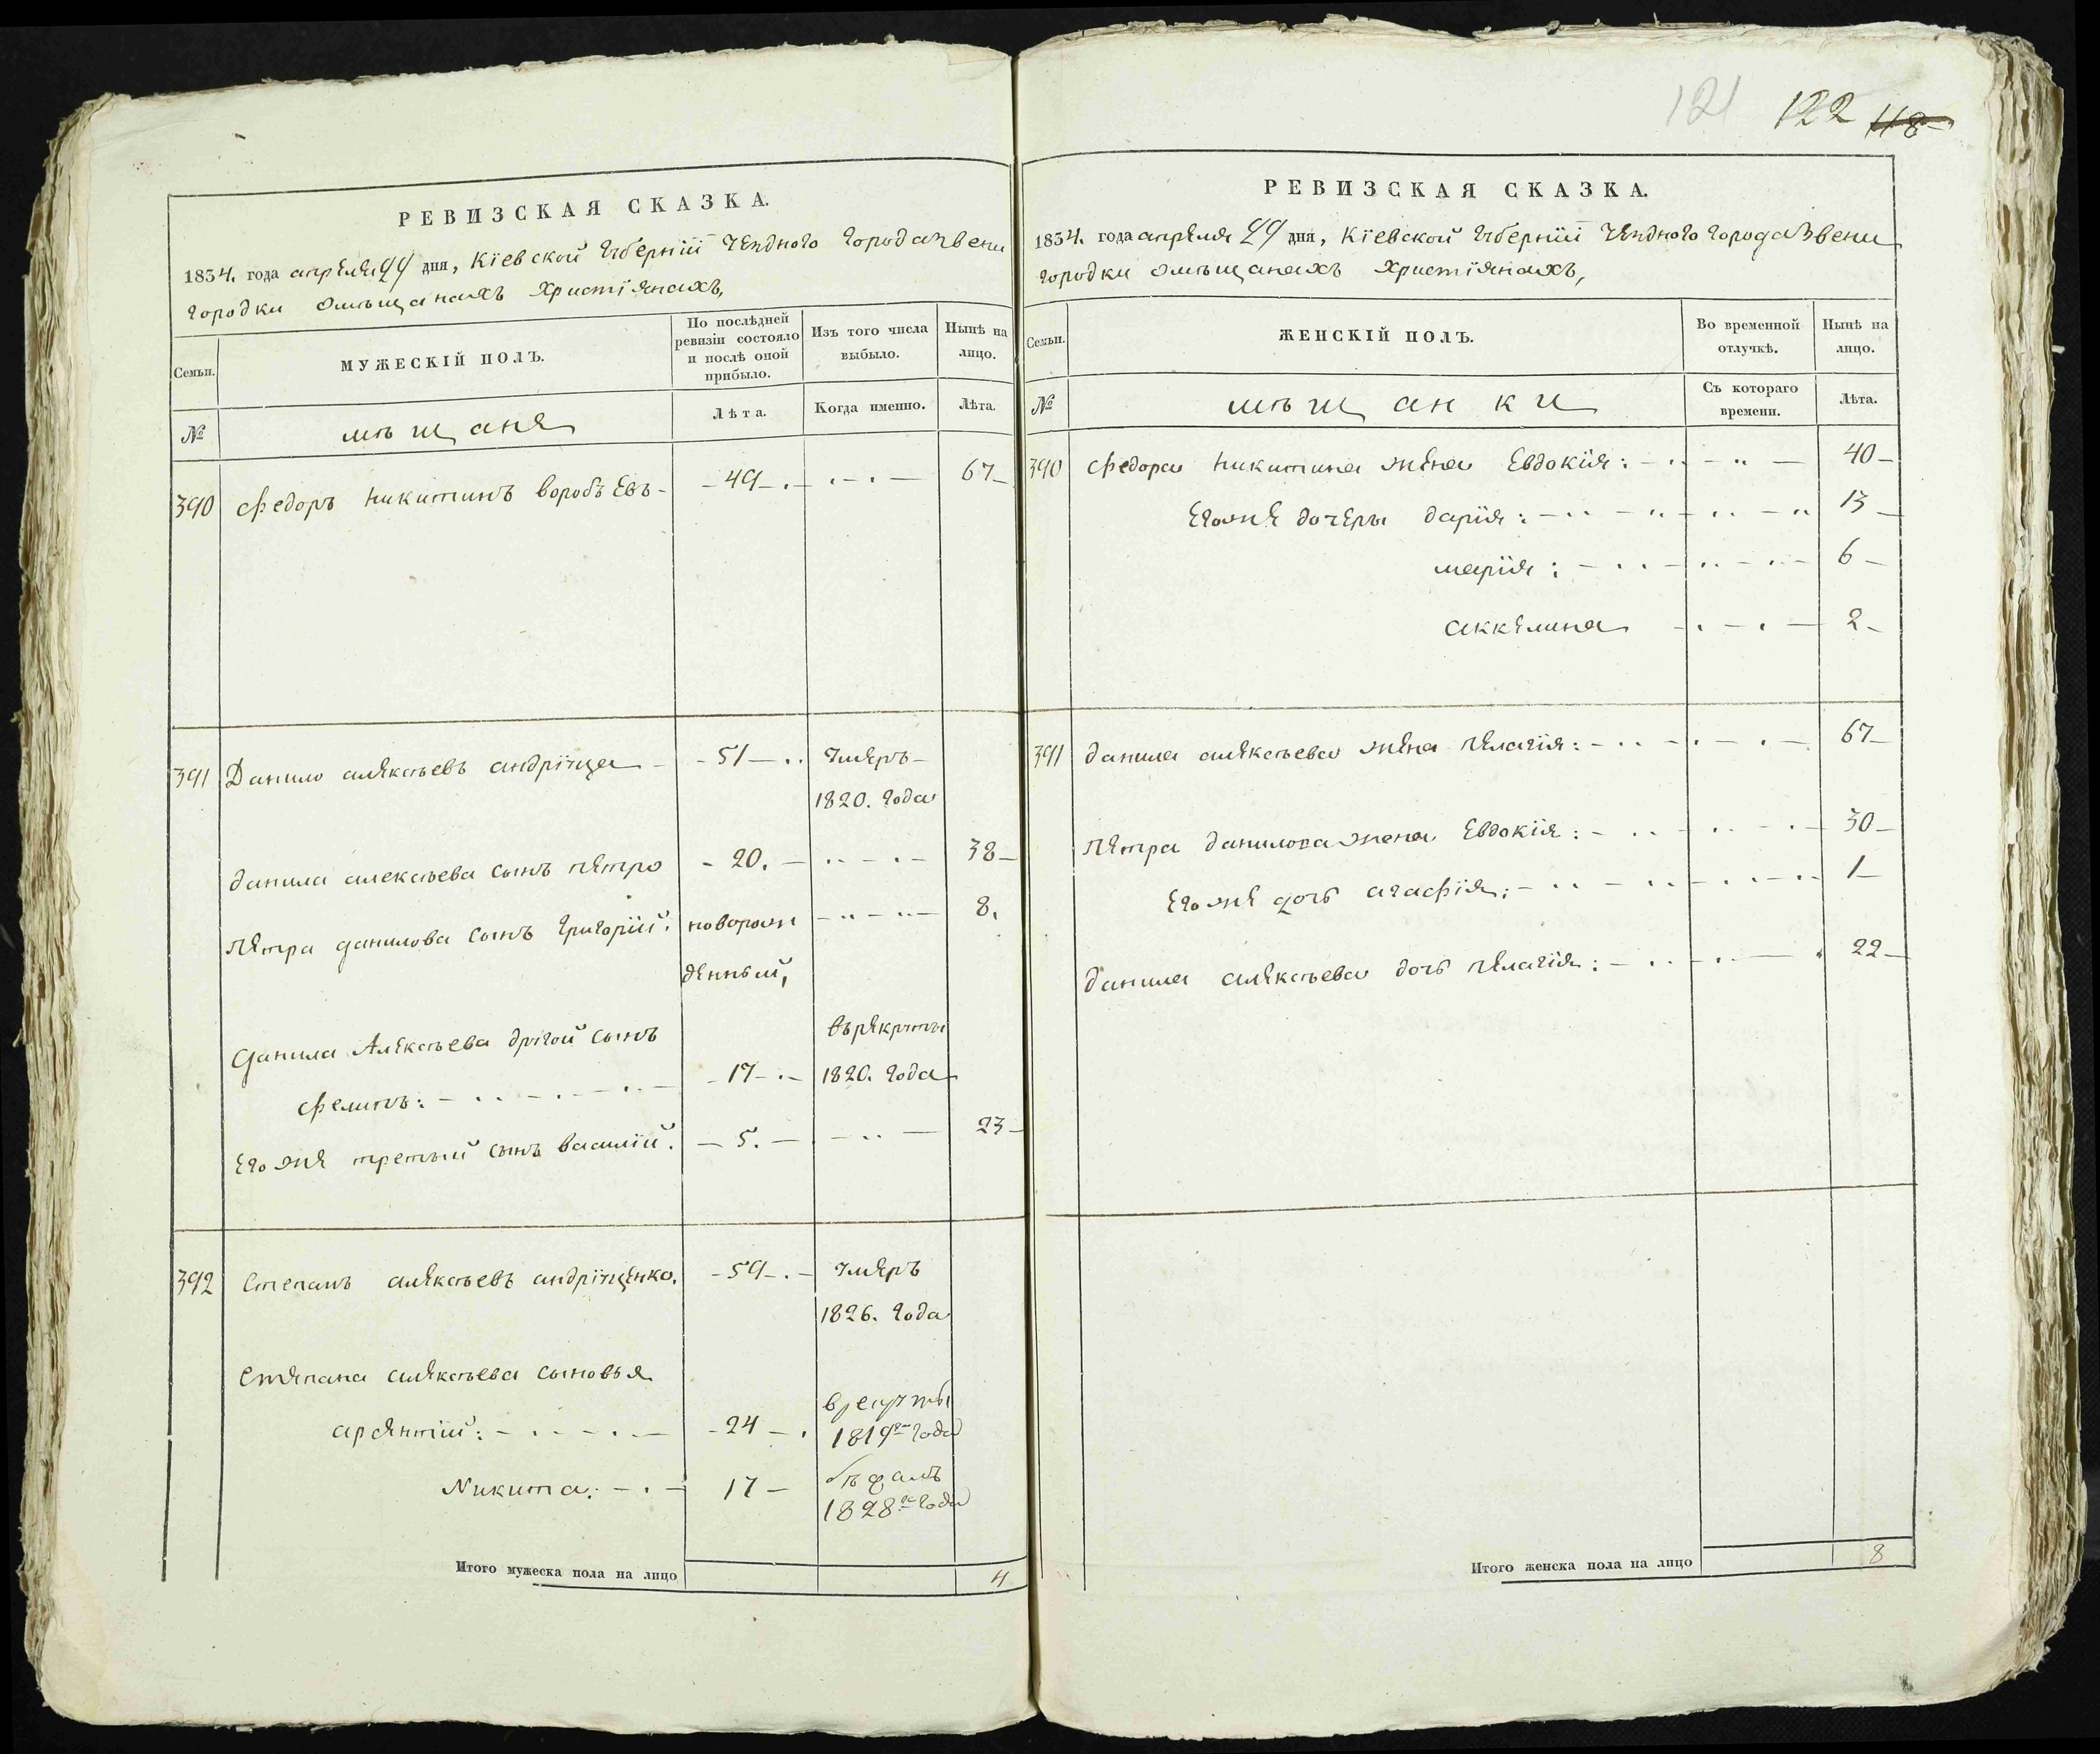 121 122 118
РЕВИЗСКАЯ СКАЗКА.
1834. года апреля 29 дня, Кіевской Губерніи Уездного Города Звени
городки омѣщанахъ Христіянахъ,
Семьи.
МУЖЕСКІЙ ПОЛЪ.
По послѣдней ревизіи состояло и послѣ оной прибыло.
Изъ того числа выбыло.
Нынѣ на лицо.
№
мѣщане
Лѣта.
Когда именно.
Лѣта.
390 Федоръ Никитинъ воробъевъ - 49 67
391 Данило алексѣевъ андріуца 51 умеръ
1820. года
данила алексѣева сынъ петро 20. 38
петра данилова сынъ григорій. новорож 8.
денный,
данила Алексѣева другой сынъ върекруты
филипъ: 17 1820. года
его же третый сынъ василій. 5. 23
392 Степанъ алексѣевъ андріущенко. 59 умеръ
1826. года
степана алексѣева сыновья
арсентій: 24 в рекруты
1819го года
Никита: 17 бѣжалъ
1828го года
Итого мужеска пола на лицо 4
РЕВИЗСКАЯ СКАЗКА.
1834. года апреля 29 дня, Кіевской Губерніи Уездного Города Звени
городки омѣщанахъ Христіянахъ,
Семьи.
ЖЕНСКІЙ ПОЛЪ.
Во временной отлучкѣ.
Нынѣ на лицо.
№
мѣщанки
Съ котораго времени.
Лѣта.
390 федора никитина жена Евдокія: 40
Егоже дочеры дарія: 13
марія: 6
аккелина 2
391 данила алексѣева жена пелагія: 67
петра данилова жена Евдокія: 30
Его же дочь агафія: 1
данила алексѣева дочь пелагія: 22
Итого женска пола на лицо 8